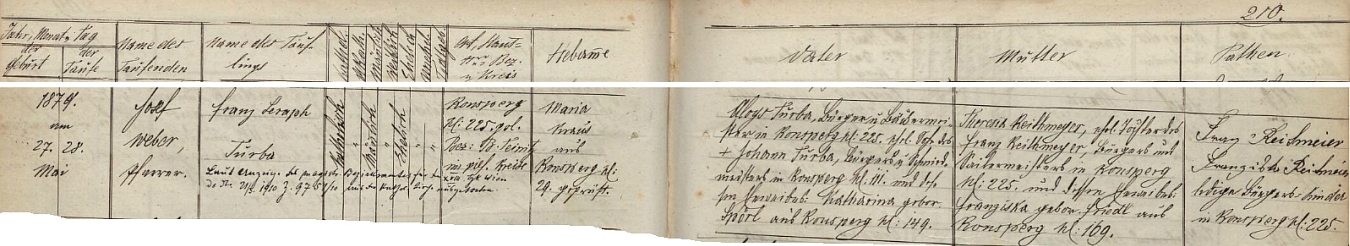 210.
Jahr, Monat, Tag
der Geburt
der Taufe
Name des
Taufenden
Name des Täuf-
lings
Kathol.
Männlich
Weiblich
Ehelich
Unehel.
Ort, Haus-
Nro Bez.
u Kreis
Hebamme
Vater
Mutter
Pathen
1879.
am
27. 28.
Mai
Josef
Weber,
Pfarrer.
Franz Seraph
Turba
Katholisch
Männlich
Ehelich
Ronsperg
N: 225. pol.
Bez: B. Teinitz
im pils. Kreise
Maria
Kraus
aus
Ronsperg N:
29. geprüft.
Aloys Turba, Bürger u Bäckermei-
ster in Ronsperg N: 225. ehl. Sohn des
+ Johann Turba, Bürgers u Schmied-
meisters in Ronsperg N: 111. und des-
sen Eheweibes Katharina gebor.
Spörl aus Ronsperg N: 149.
Theresia Reithmeyer, ehl. Tochter des
Franz Reithmeyer, Bürgers und
Seilermeisters in Ronsperg
N: 225. und dessen Eheweibes
Franziska gebor. Friedl aus
Ronsperg N: 169.
Franz Reithmeier
Franziska Reithmeier
ledige Bürgerskinder
in Ronsperg N: 225.